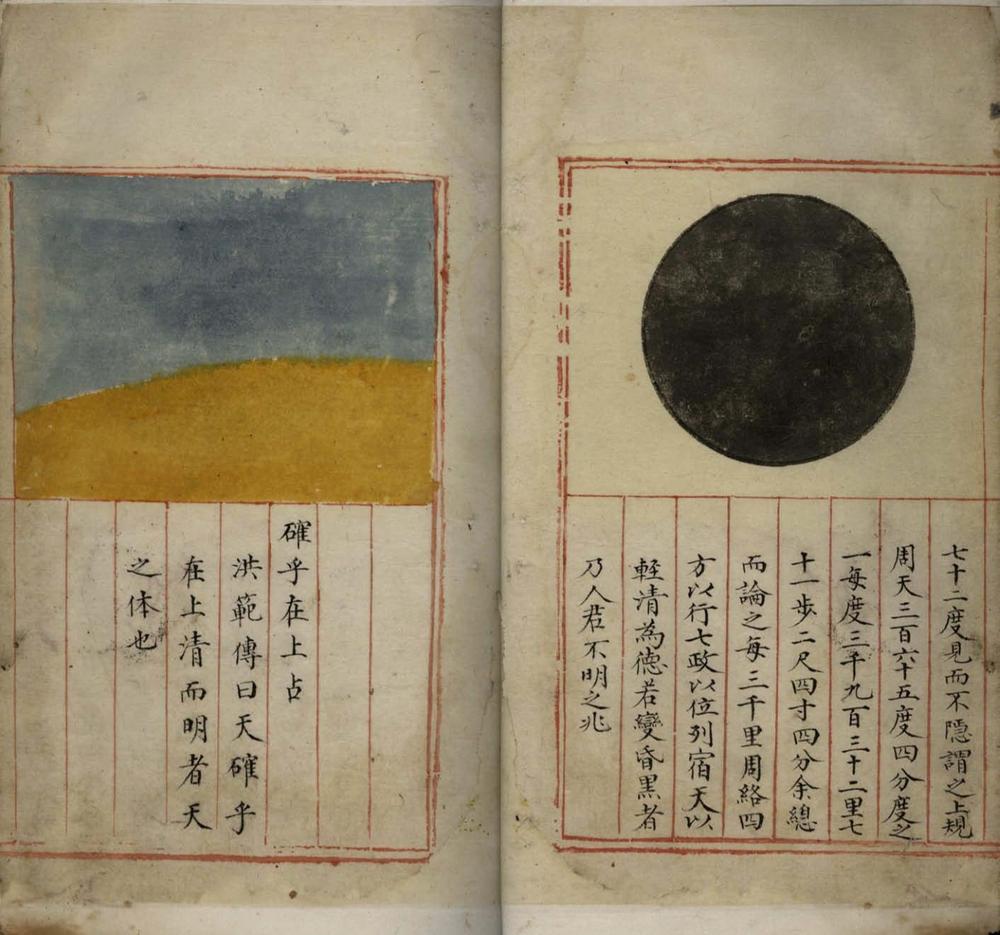 七十二度見而不隱謂之上規
周天三百六十五度四分度之
一每度三千九百三十二里七
十一步二尺四寸四分余總
而論之每三千里周絡四
方以行七政以位列宿天以
輕清為德若變昏黑者
乃人君不明之兆
確乎在上占
洪範傳曰天確乎
在上清而明者天
之体也